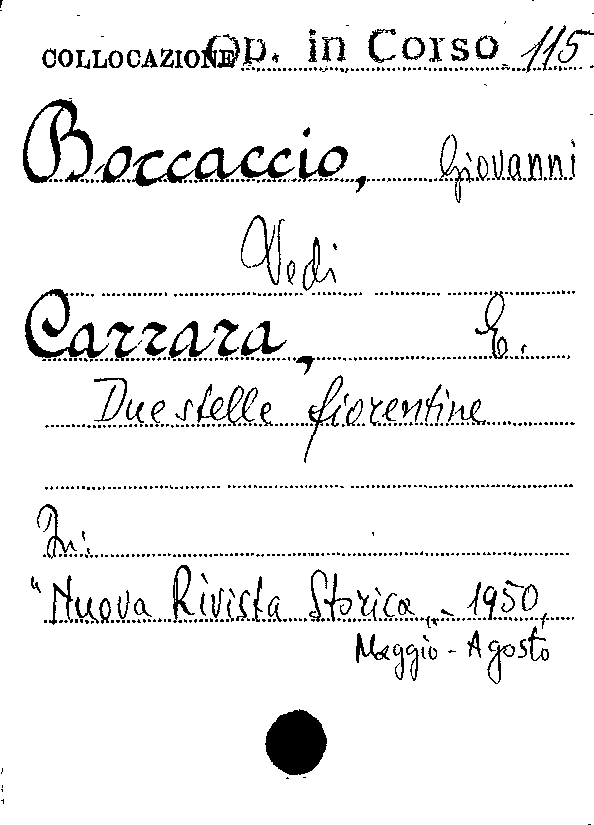 COLLOCAZIONE Op. in Corso 115
Boccaccio, Giovanni
Vedi
Carrara, E.
Due stelle fiorentine
In:
"Nuova Rivista Storica" - 1950,
Maggio - Agosto